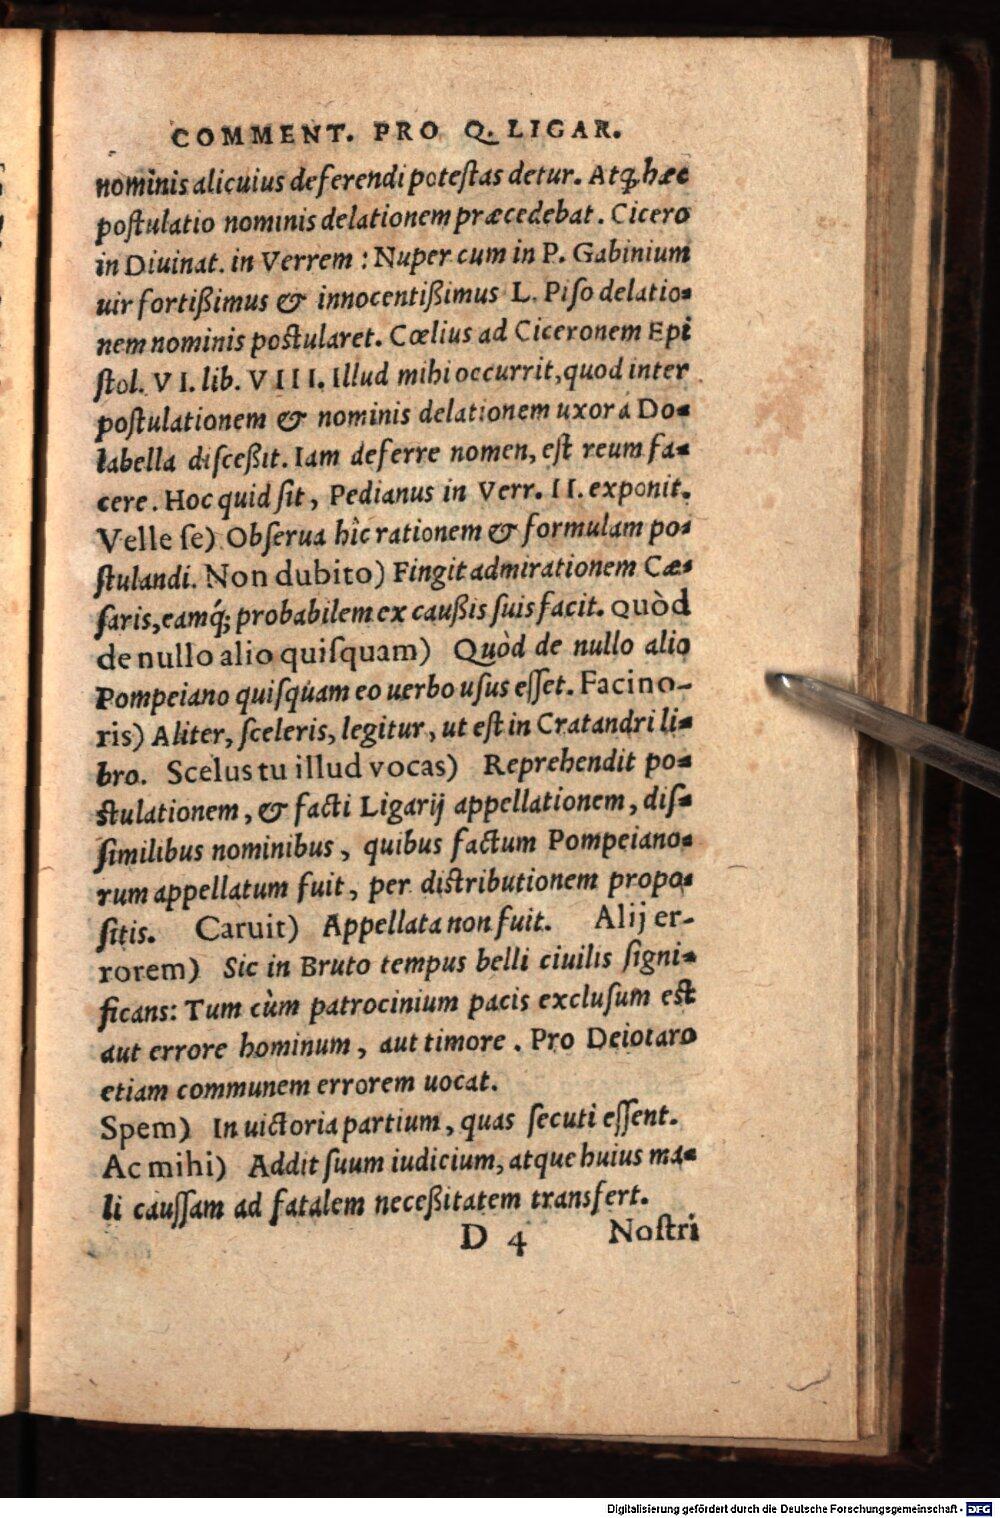 COMMENT. PRO Q. LIGAR.
nominis alicuius deferendi potestas detur. Atq; hæc
postulatio nominis delationem præcedebat. Cicero
in Diuinat. in Verrem : Nuper cum in P. Gabinium
uir fortißimus & innocentißimus L. Piso delatio-
nem nominis postularet. Cœlius ad Ciceronem Epi
stol. VI. lib. VIII. Illud mihi occurrit, quod inter
postulationem & nominis delationem uxor á Do-
labella disceßit. Iam deferre nomen, est reum fa-
cere. Hoc quid sit, Pedianus in Verr. II. exponit.
Velle se) Obserua hîc rationem & formulam po-
stulandi. Non dubito) Fingit admirationem Cæ-
saris, eamq́; probabilem ex caußis suis facit. Quòd
de nullo alio quisquam) Quòd de nullo alio
Pompeiano quisquam eo uerbo usus esset. Facino-
ris) Aliter, sceleris, legitur, ut est in Cratandri li-
bro. Scelus tu illud vocas) Reprehendit po-
stulationem, & facti Ligarij appellationem, dis-
similibus nominibus, quibus factum Pompeiano-
rum appellatum fuit, per distributionem propo-
sitis. Caruit) Appellata non fuit. Alij er-
rorem) Sic in Bruto tempus belli ciuilis signi-
ficans: Tum cùm patrocinium pacis exclusum est
aut errore hominum, aut timore. Pro Deiotaro
etiam communem errorem uocat.
Spem) In uictoria partium, quas secuti essent.
Ac mihi) Addit suum iudicium, atque huius ma-
li caussam ad fatalem neceßitatem transfert.
D 4 Nostri
Digitalisierung gefördert durch die Deutsche Forschungsgemeinschaft - DFG